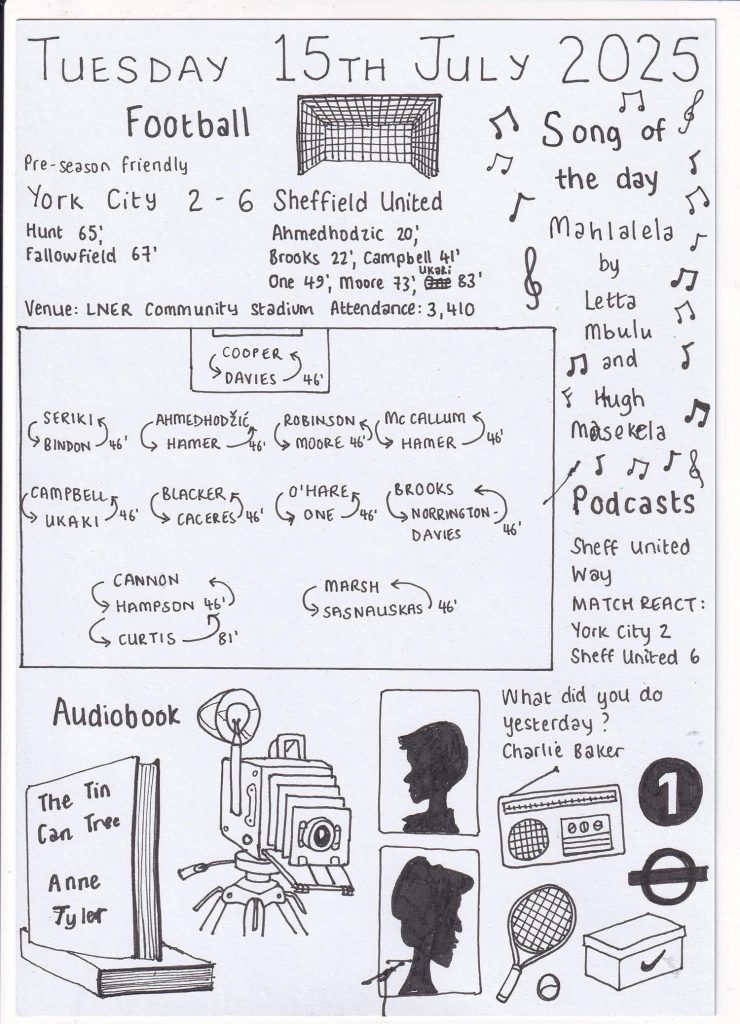 TUESDAY 15TH JULY 2025
Football
Pre-season friendly
York City 2 - 6 Sheffield United
Hunt 65',
Fallowfield 67'
Ahmedhodzic 20',
Brooks 22', Campbell 41'
One 49', Moore 73', Ukaki 83'
Venue: LNER Community Stadium Attendance: 3,410
COOPER
DAVIES 46'
SERIKI
BINDON 46'
AHMEDHODŽIĆ
HAMER 46'
ROBINSON
MOORE 46'
MCCALLUM
HAMER 46'
CAMPBELL
UKAKI 46'
BLACKER
CACERES 46'
O'HARE
ONE 46'
BROOKS
NORRINGTON-
DAVIES 46'
CANNON
HAMPSON 46'
CURTIS 81'
MARSH
SASNAUSKAS 46'
Song of
the day
Mahlalela
by
Letta
Mbulu
and
Hugh
Masekela
Podcasts
Sheff United
Way
MATCH REACT:
York City 2
Sheff United 6
What did you do
yesterday?
Charlie Baker
1
Audiobook
The Tin
Can Tree
Anne
Tyler